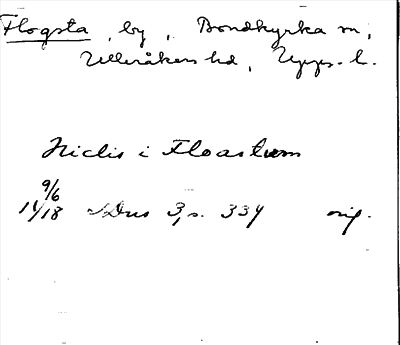 Flogsta, by, Bondkyrka sn,
Ulleråkers hd, Upps. l.
Niclis i Floastum
9/6
1418 SDns 3, s. 334 orig.